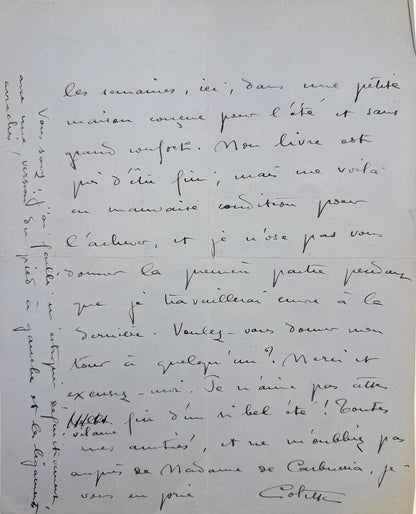 les semaines, ici, dans une petite
maison conçue pour l'été et sans
grand confort. Mon livre est
près d'être fini, mais me voilà
en mauvaise condition pour
l'achever, et je n'ose pas vous
donner la première partie pendant
que je travaillerai encore à la
dernière. Voulez-vous donner mon
tour à quelqu'un ? Merci et
excusez-moi. Je n'aime pas cette
vilaine fin d'un si bel été ! Toutes
mes amitiés, et ne m'oubliez pas
auprès de Madame de Carbuccia, je
vous en prie
Colette
Vous savez, j'ai failli m'estropier définitivement,
avec une version du pied à gauche et les ligaments
arrachés !